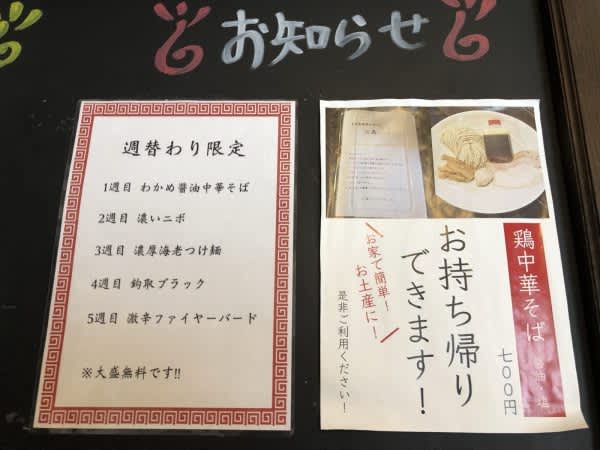 お知らせ
週替わり限定
1週目 わかめ醤油中華そば
2週目 濃いニボ
3週目 濃厚海老つけ麺
4週目 鈎取ブラック
5週目 激辛ファイヤーバード
※大盛無料です!!
鶏中華そば
七〇〇円
お持ち帰り
できます!
お家で簡単!
お土産に!
是非ご利用ください!